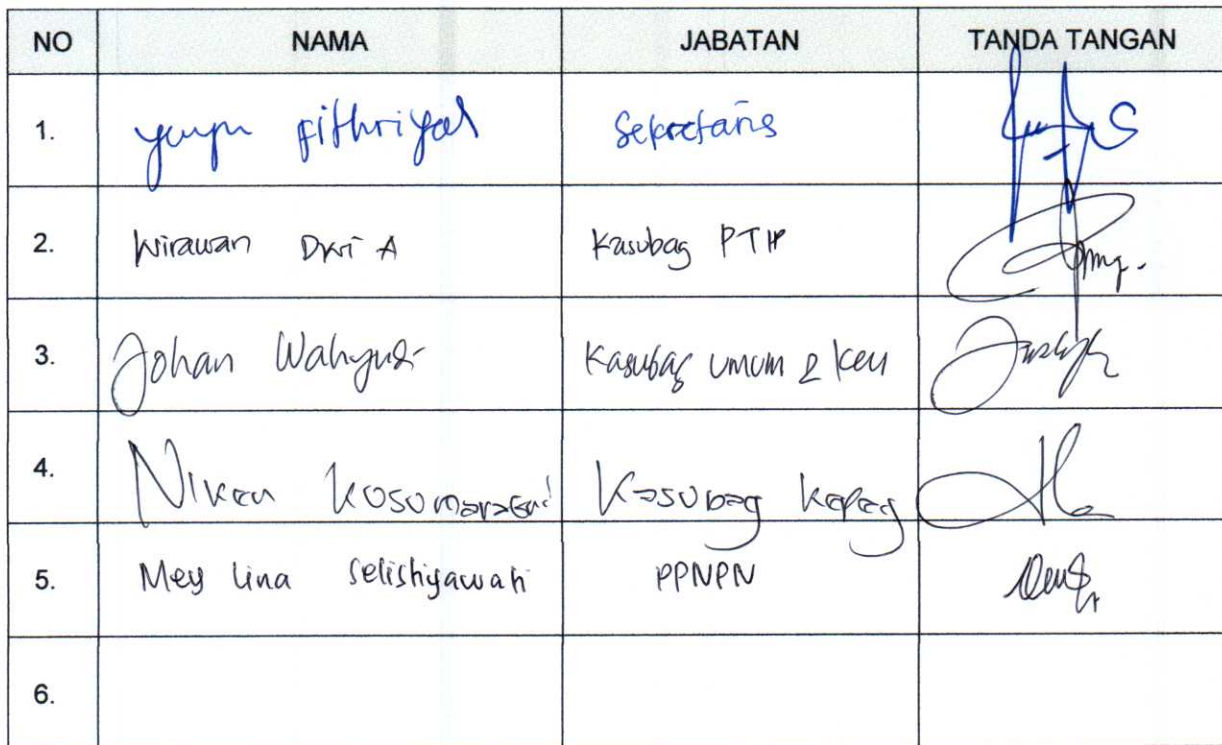 NO NAMA JABATAN TANDA TANGAN
1. Fithriyah Sekretaris
2. Wirawan Dwi A Kasubag PTIP
3. Johan Wahyudi Kasubag Umum & Keu
4. Niken Kusumawardani Kasubag Kepeg
5. Mey Lina Selishyawati PPNPN
6.